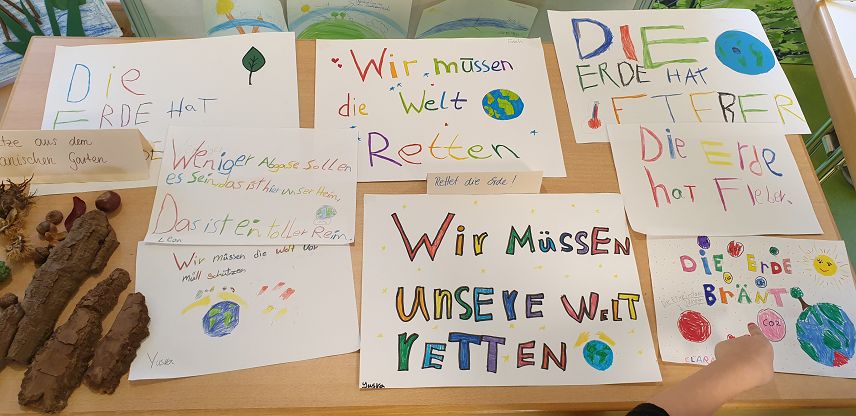 Die
ERDE HAT
Wir müssen
die Welt
Retten
DIE
ERDE HAT
FIEBER
tze aus dem
anischen Garten
Weniger Abgase Sollen
es Sein, das ist hier unser Heim.
Das ist ein toller Reim.
Lean
Rettet die Erde!
Die Erde
hat Fieber.
Wir müssen die Welt vor
müll schützen
Yusra
Wir MÜSSEN
UNSERE WELT
RETTEN
Yusra
DIE ERDE
BRÄNT
CO2
CLARA